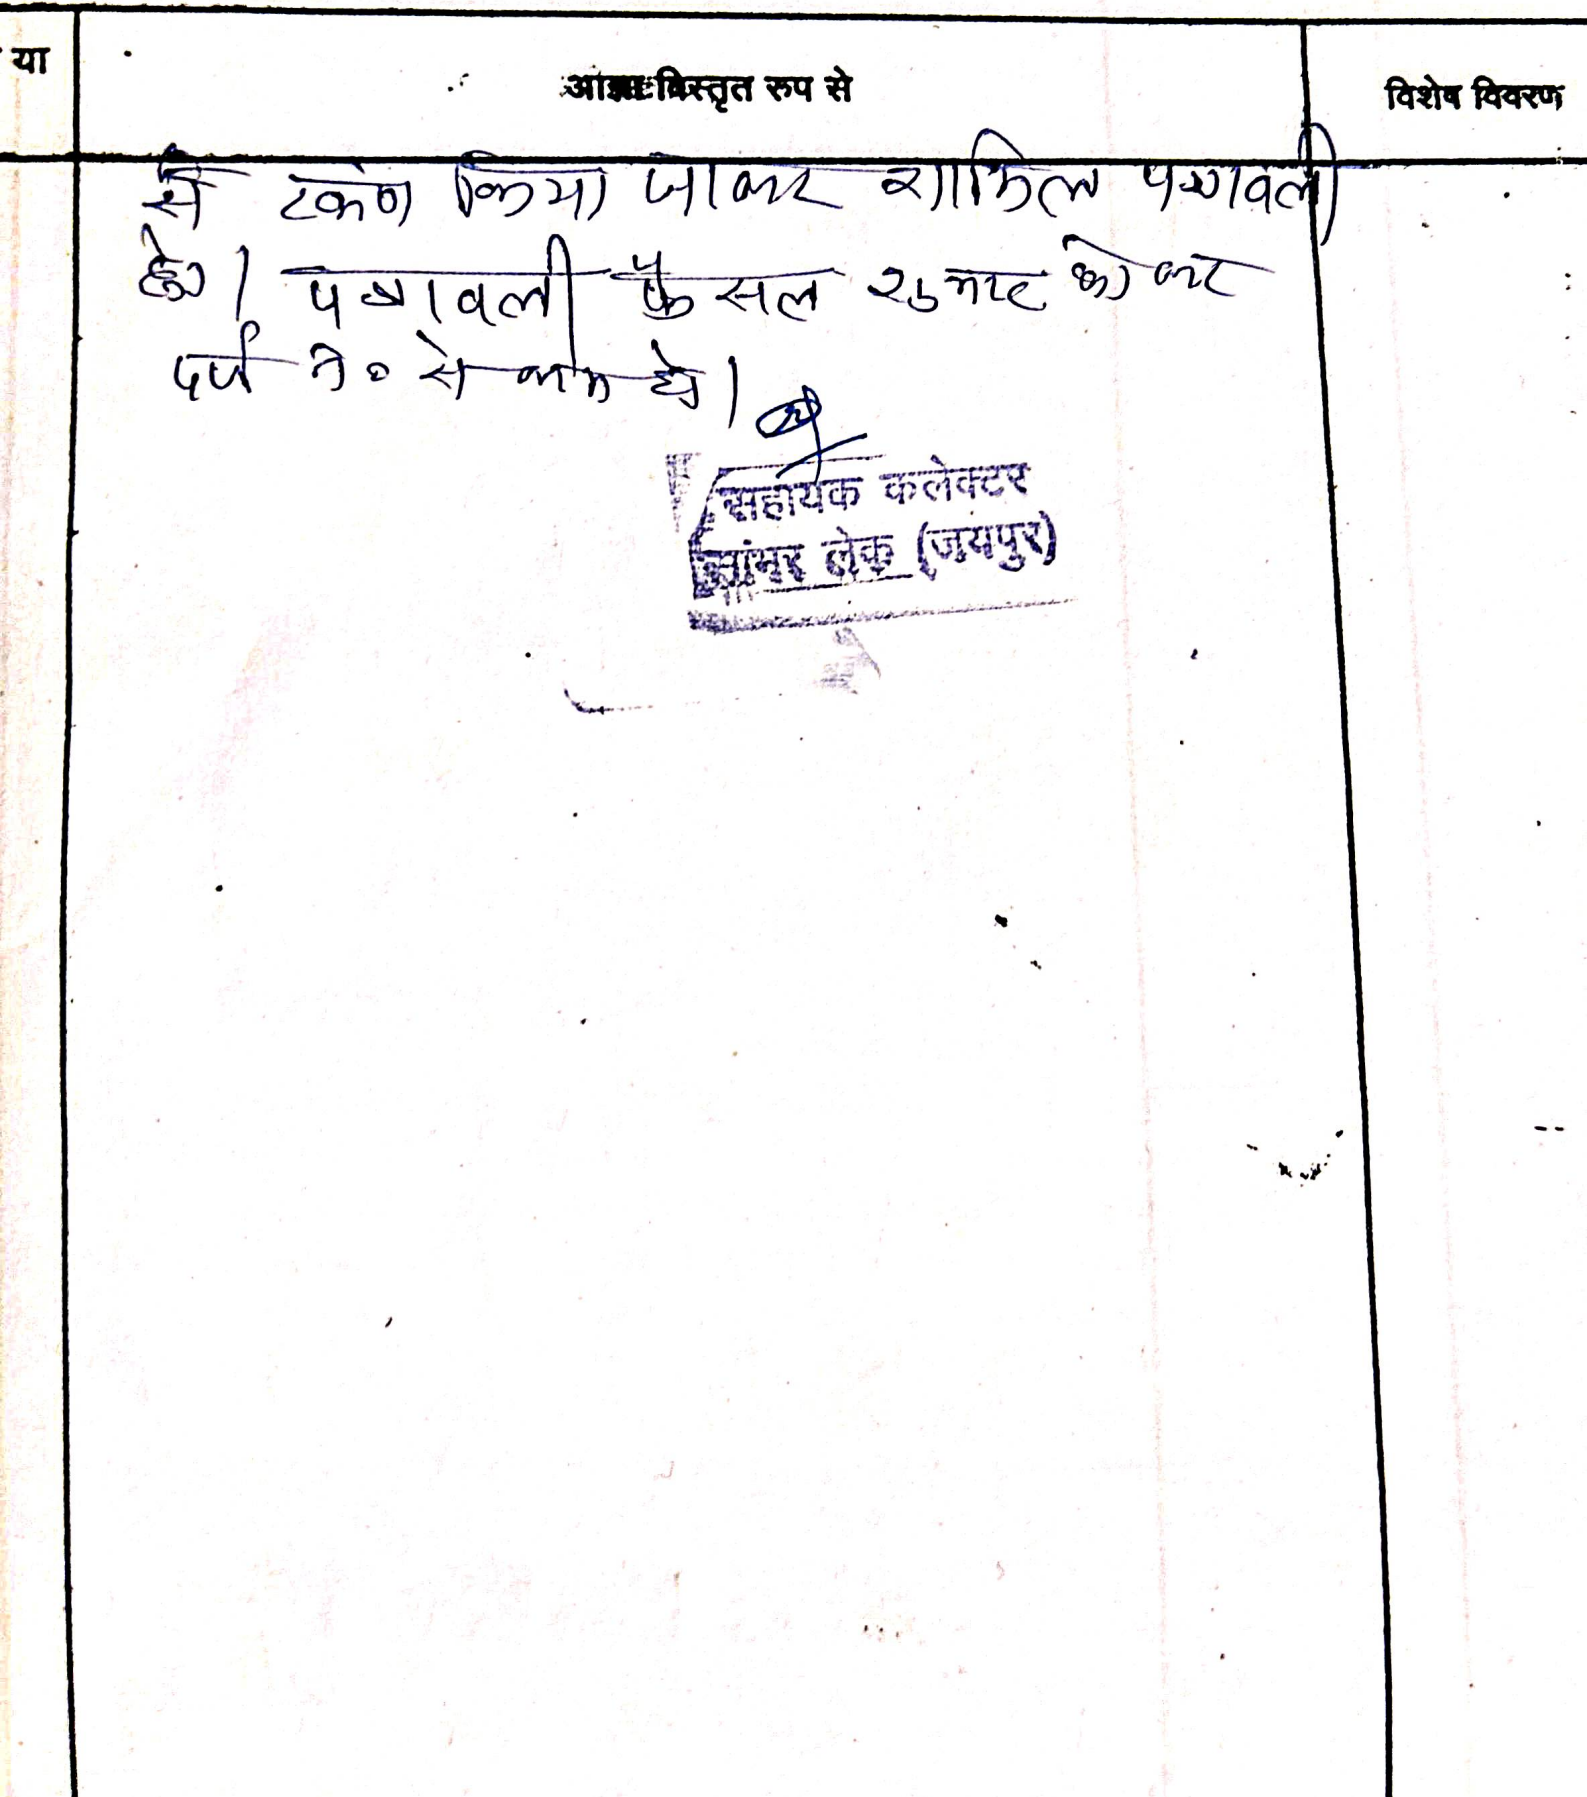 या
आज्ञा विस्तृत रुप से
विशेष विवरण
से टंकण किया जाकर शामिल पत्रावली
हो। पत्रावली फैसल शुमार होकर
दर्ज नं० से कम हो।
सहायक कलेक्टर
सांभर लेक (जयपुर)